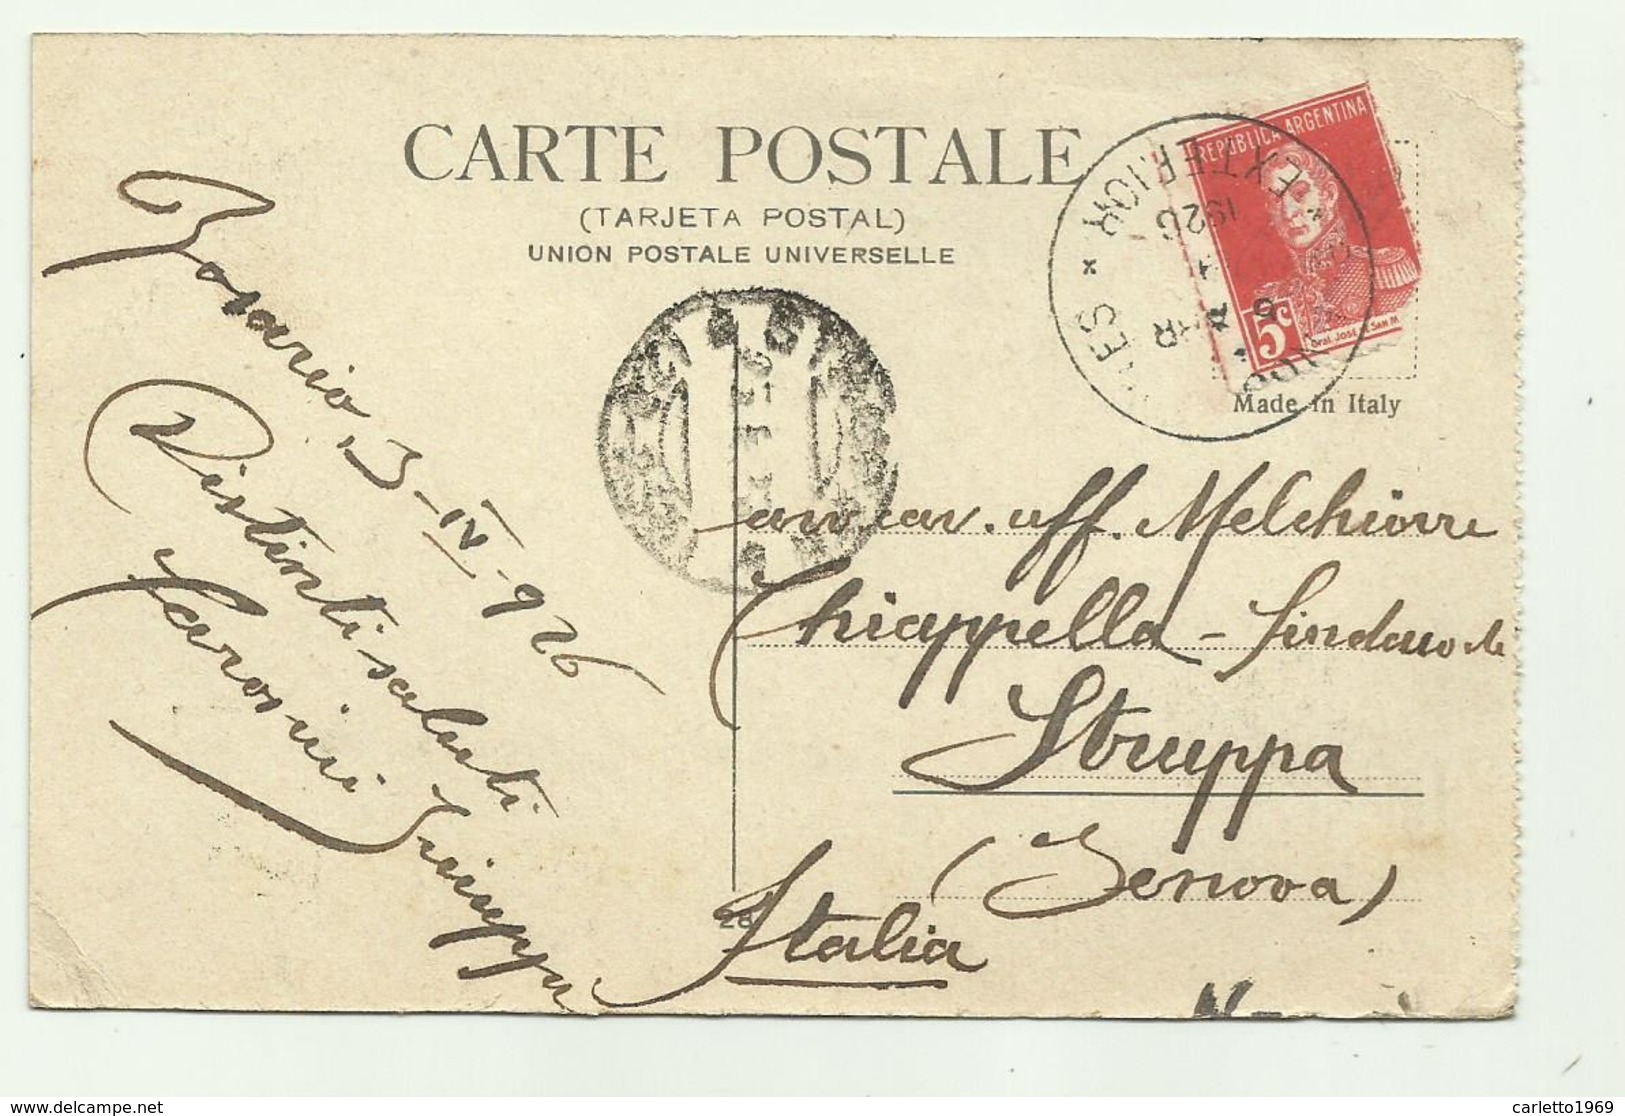 CARTE POSTALE
(TARJETA POSTAL)
UNION POSTALE UNIVERSELLE
REPUBLICA ARGENTINA
5c
Gral José de San M
EXTERIOR
1926
Made in Italy
Rosario 3-IV-926
Distinti saluti
Giuseppe
cav. uff. Melchiorre
Chiappella - Sindaco di
Struppa
(Genova)
Italia
28
carletto1969
delcampe.net